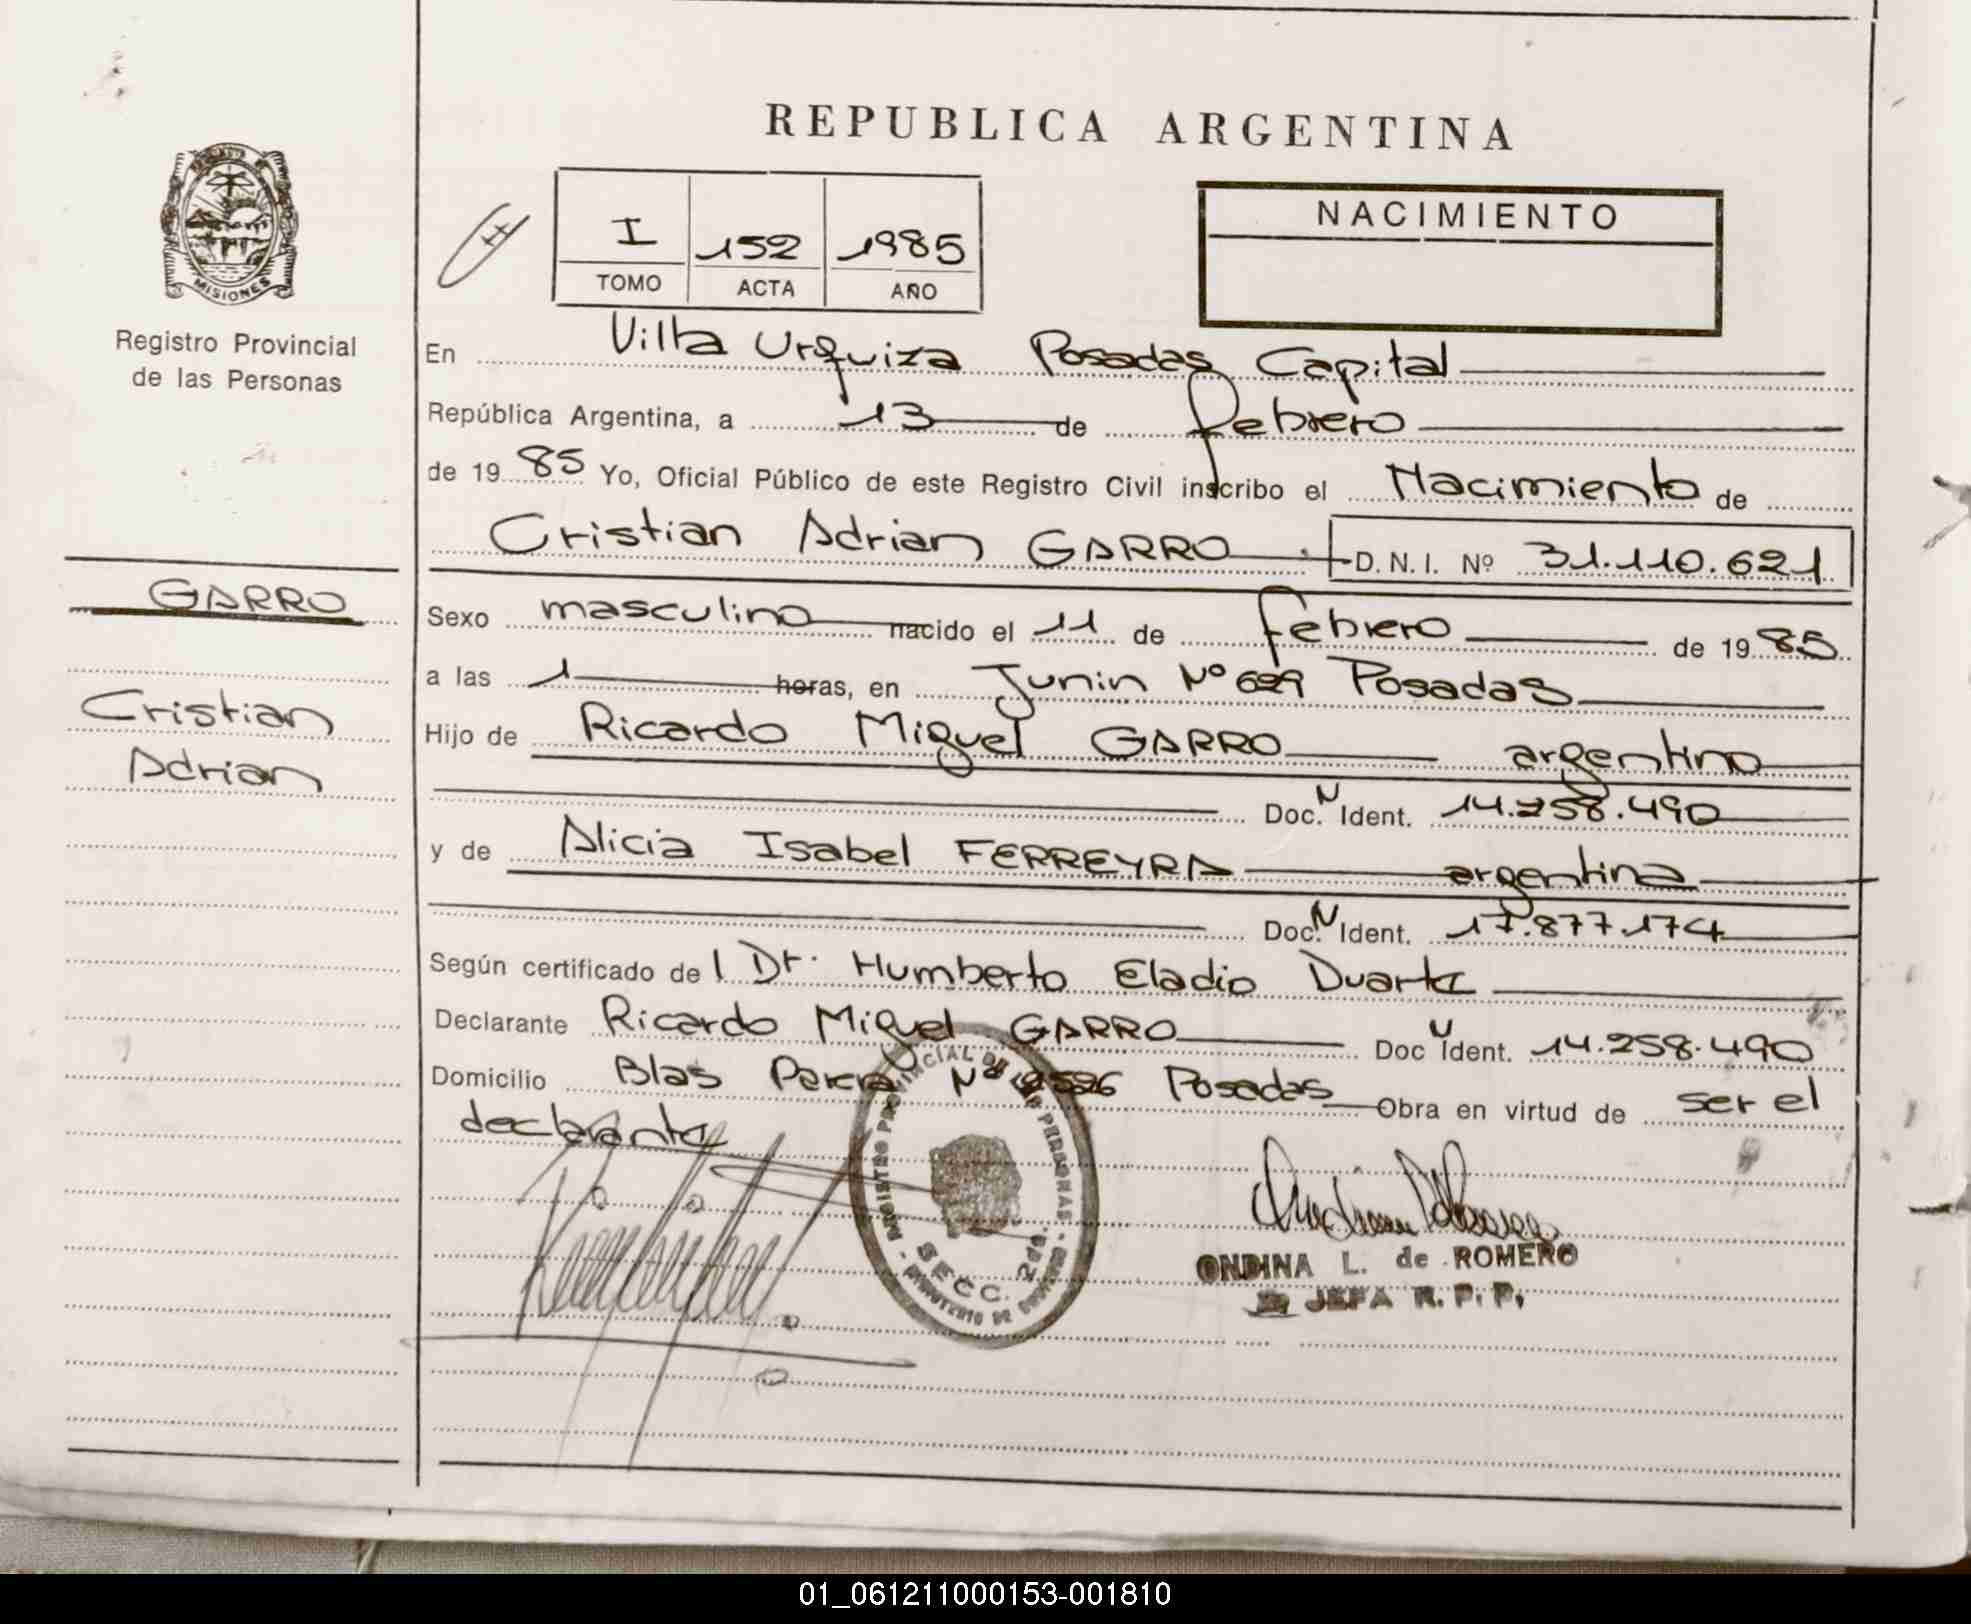 REPUBLICA ARGENTINA
MISIONES
Registro Provincial
de las Personas
I 152 1985
TOMO ACTA AÑO
NACIMIENTO
En Villa Urquiza Posadas Capital
República Argentina, a 13 de febrero
de 1985 Yo, Oficial Público de este Registro Civil inscribo el Nacimiento de
Cristian Adrian GARRO D. N. I. Nº 31.110.621
GARRO
Cristian
Adrian
Sexo masculino nacido el 11 de febrero de 1985
a las 1 horas, en Junin Nº 629 Posadas
Hijo de Ricardo Miguel GARRO argentino
Doc. N Ident. 14.258.490
y de Alicia Isabel FERREYRA argentina
Doc. N Ident. 17.877.174
Según certificado del Dr. Humberto Eladio Duarte
Declarante Ricardo Miguel GARRO Doc N Ident. 14.258.490
Domicilio Blas Parera Nº Posadas Obra en virtud de ser el
declarante
REGISTRO PROVINCIAL DE LAS PERSONAS
SECC. 2da.
MINISTERIO DE GOBIERNO
ONDINA L. de ROMERO
JEFA R. P. P.
01_061211000153-001810